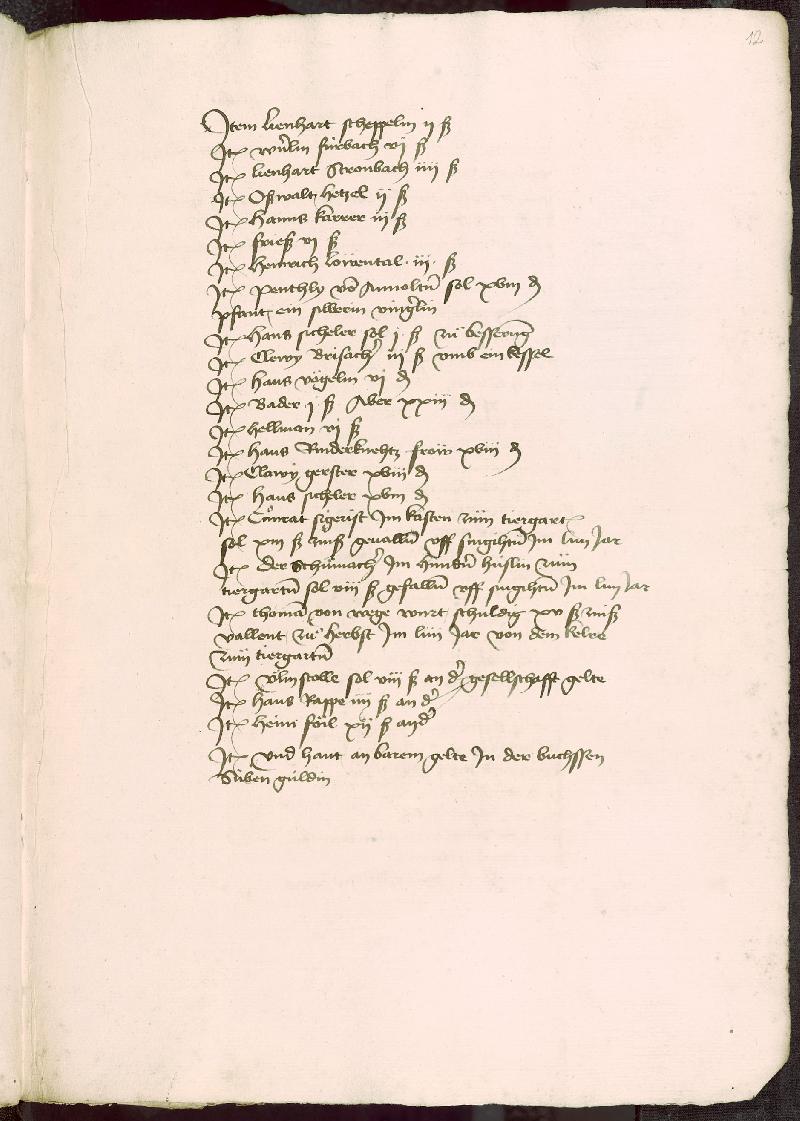 12
Item lienhart scheppelin ij ß
Itē würlin fürbach vj ß
Itē lienhart Stronbach iiij ß
Itē Oßwalt hetzel ij ß
Itē Hanns karrer iij ß
Itē frieß vj ß
Itē Heinrich löwental iij ß
Itē penthly vō Annoltn̄ sol xviij d
pfant ein silberin vinglin
Itē hans sicheler sol j ß zu besserūg
Itē Clewy Brisach̓ iij ß vmb ein kessel
Itē hans vögelin vj d
Itē Bader j ß Aber xxiij d
Itē hellman vj ß
Itē hans Rinderknehtz frow xviij d
Itē Clawy gerster xviij d
Itē hans sicheler xviij d
Itē Cůnrat sigerist Im kasten zum tiergartē
sol xiij ß zinß geualln̄ vff sungihtn̄ Im liiij Jar
Itē der Schůmach̓ Im hindn̄ hüslin zum
tiergartn̄ sol viij ß gefalln̄ vff sungihtn̄ Im liiij Jar
Itē thoman von wurt schuldig xv ß zinß
vallent zu herbst Im liiij Jar von dem keler
zum tiergartn̄
Itē vlin stolle sol viij ß an d̓ gesellschafft gelte
Itē hans Rappe iiij ß an d̓
Itē heini föil xij ß an d̓
Itē vnd hant an barem gelte In der buchssen
Siben guldin